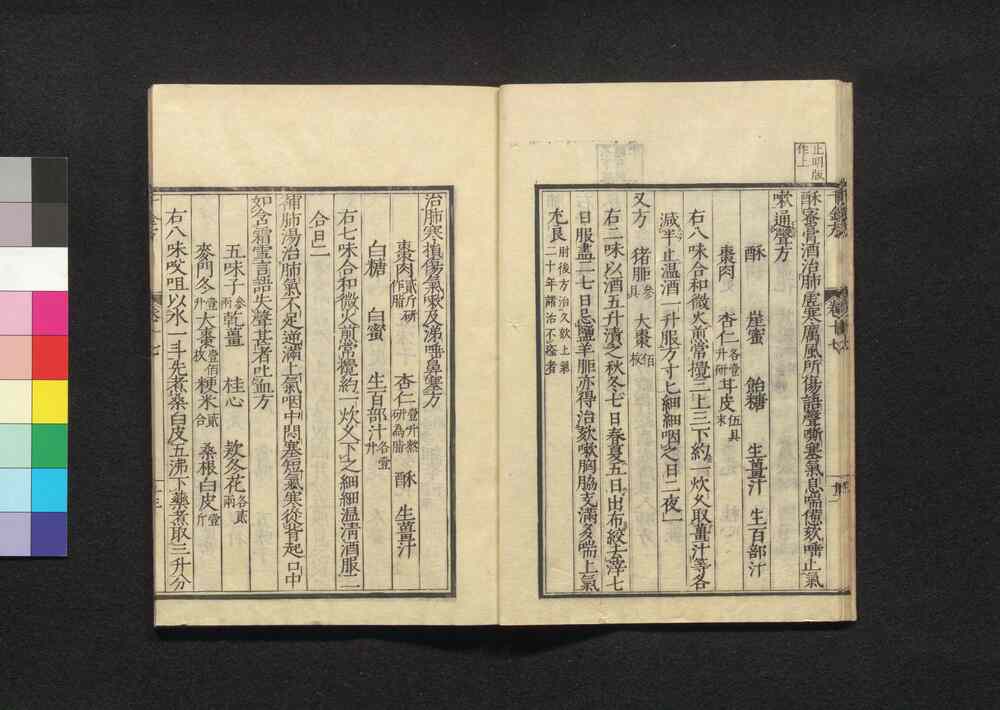 止明版
作上
酥蜜膏酒治肺虛寒厲風所傷語聲嘶塞氣息喘憊欬唾止氣
嗽通聲方
酥 崖蜜 飴糖 生薑汁 生百部汁
棗肉 杏仁各壹升研 耳皮伍具末
右八味合和微火煎常攪三上三下約一炊久取薑汁等各
減半止温酒一升服方寸匕細細咽之日二夜一
又方 猪胵參具 大棗佰枚
右二味以酒五升漬之秋冬七日春夏五日出布絞去滓七
日服盡二七日忌鹽羊胵亦得治欬嗽胸脇支滿多喘上氣
尤良肘後方治久欬上氣二十年諸治不差者
治肺寒損傷氣嗽及涕唾鼻塞方
棗肉貳斤研作脂 杏仁壹升熬研為脂 酥 生薑汁
白糖 白蜜 生百部汁各壹升
右七味合和微火煎常攪約一炊久下之細細温清酒服二
合日二
補肺湯治肺氣不足逆滿上氣咽中悶塞短氣寒從背起口中
如含霜雪言語失聲甚者吐血方
五味子參兩 乾薑 桂心 欵冬花各貳兩
麥門冬壹升 大棗壹佰枚 粳米貳合 桑根白皮壹斤
右八味㕮咀以水一斗先煮桑白皮五沸下藥煮取三升分